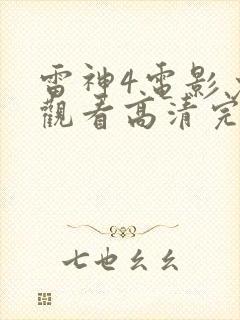 雷神4.電影
觀看高清完
七也幺幺